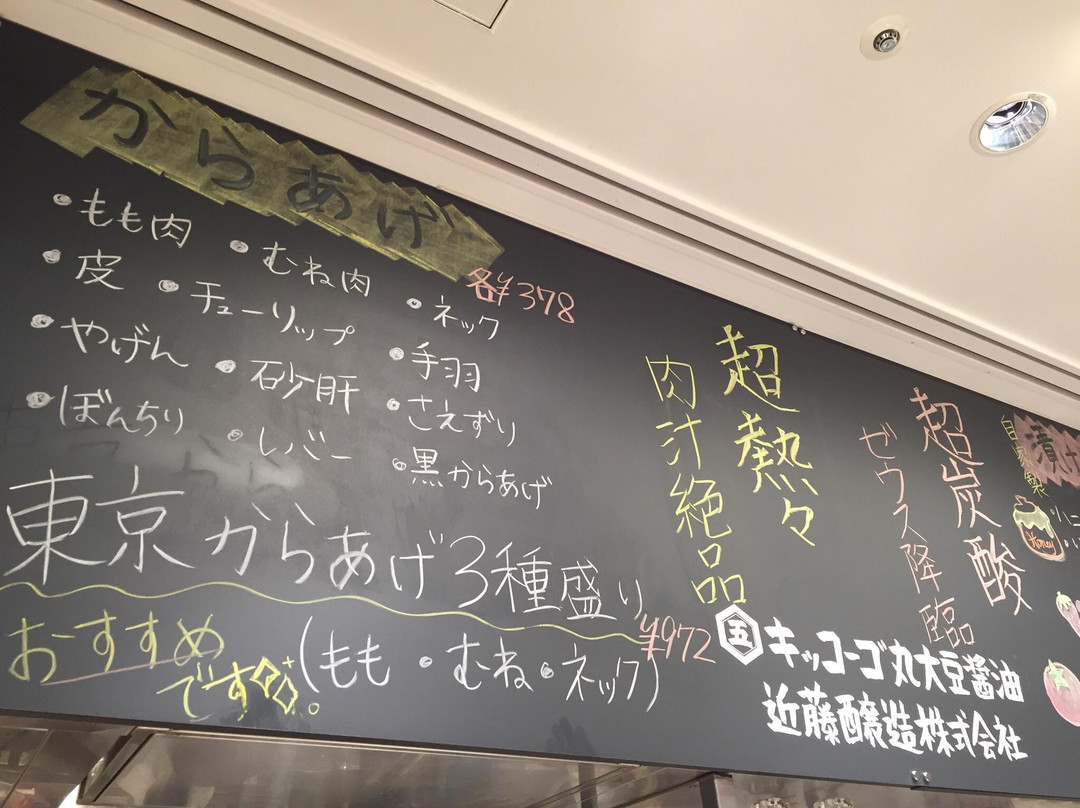 からあげ
各¥378
・もも肉 ・むね肉 ・ネック
・皮 ・チューリップ ・手羽
・やげん ・砂肝 ・さえずり
・ぼんちり ・レバー ・黒からあげ
東京からあげ3種盛り
¥972
おすすめ
です
(もも・むね・ネック)
超熱々
肉汁絶品
超炭酸
ゼウス降臨
自家製
漬け
Honey
五 キッコーゴ丸大豆醤油
近藤醸造株式会社